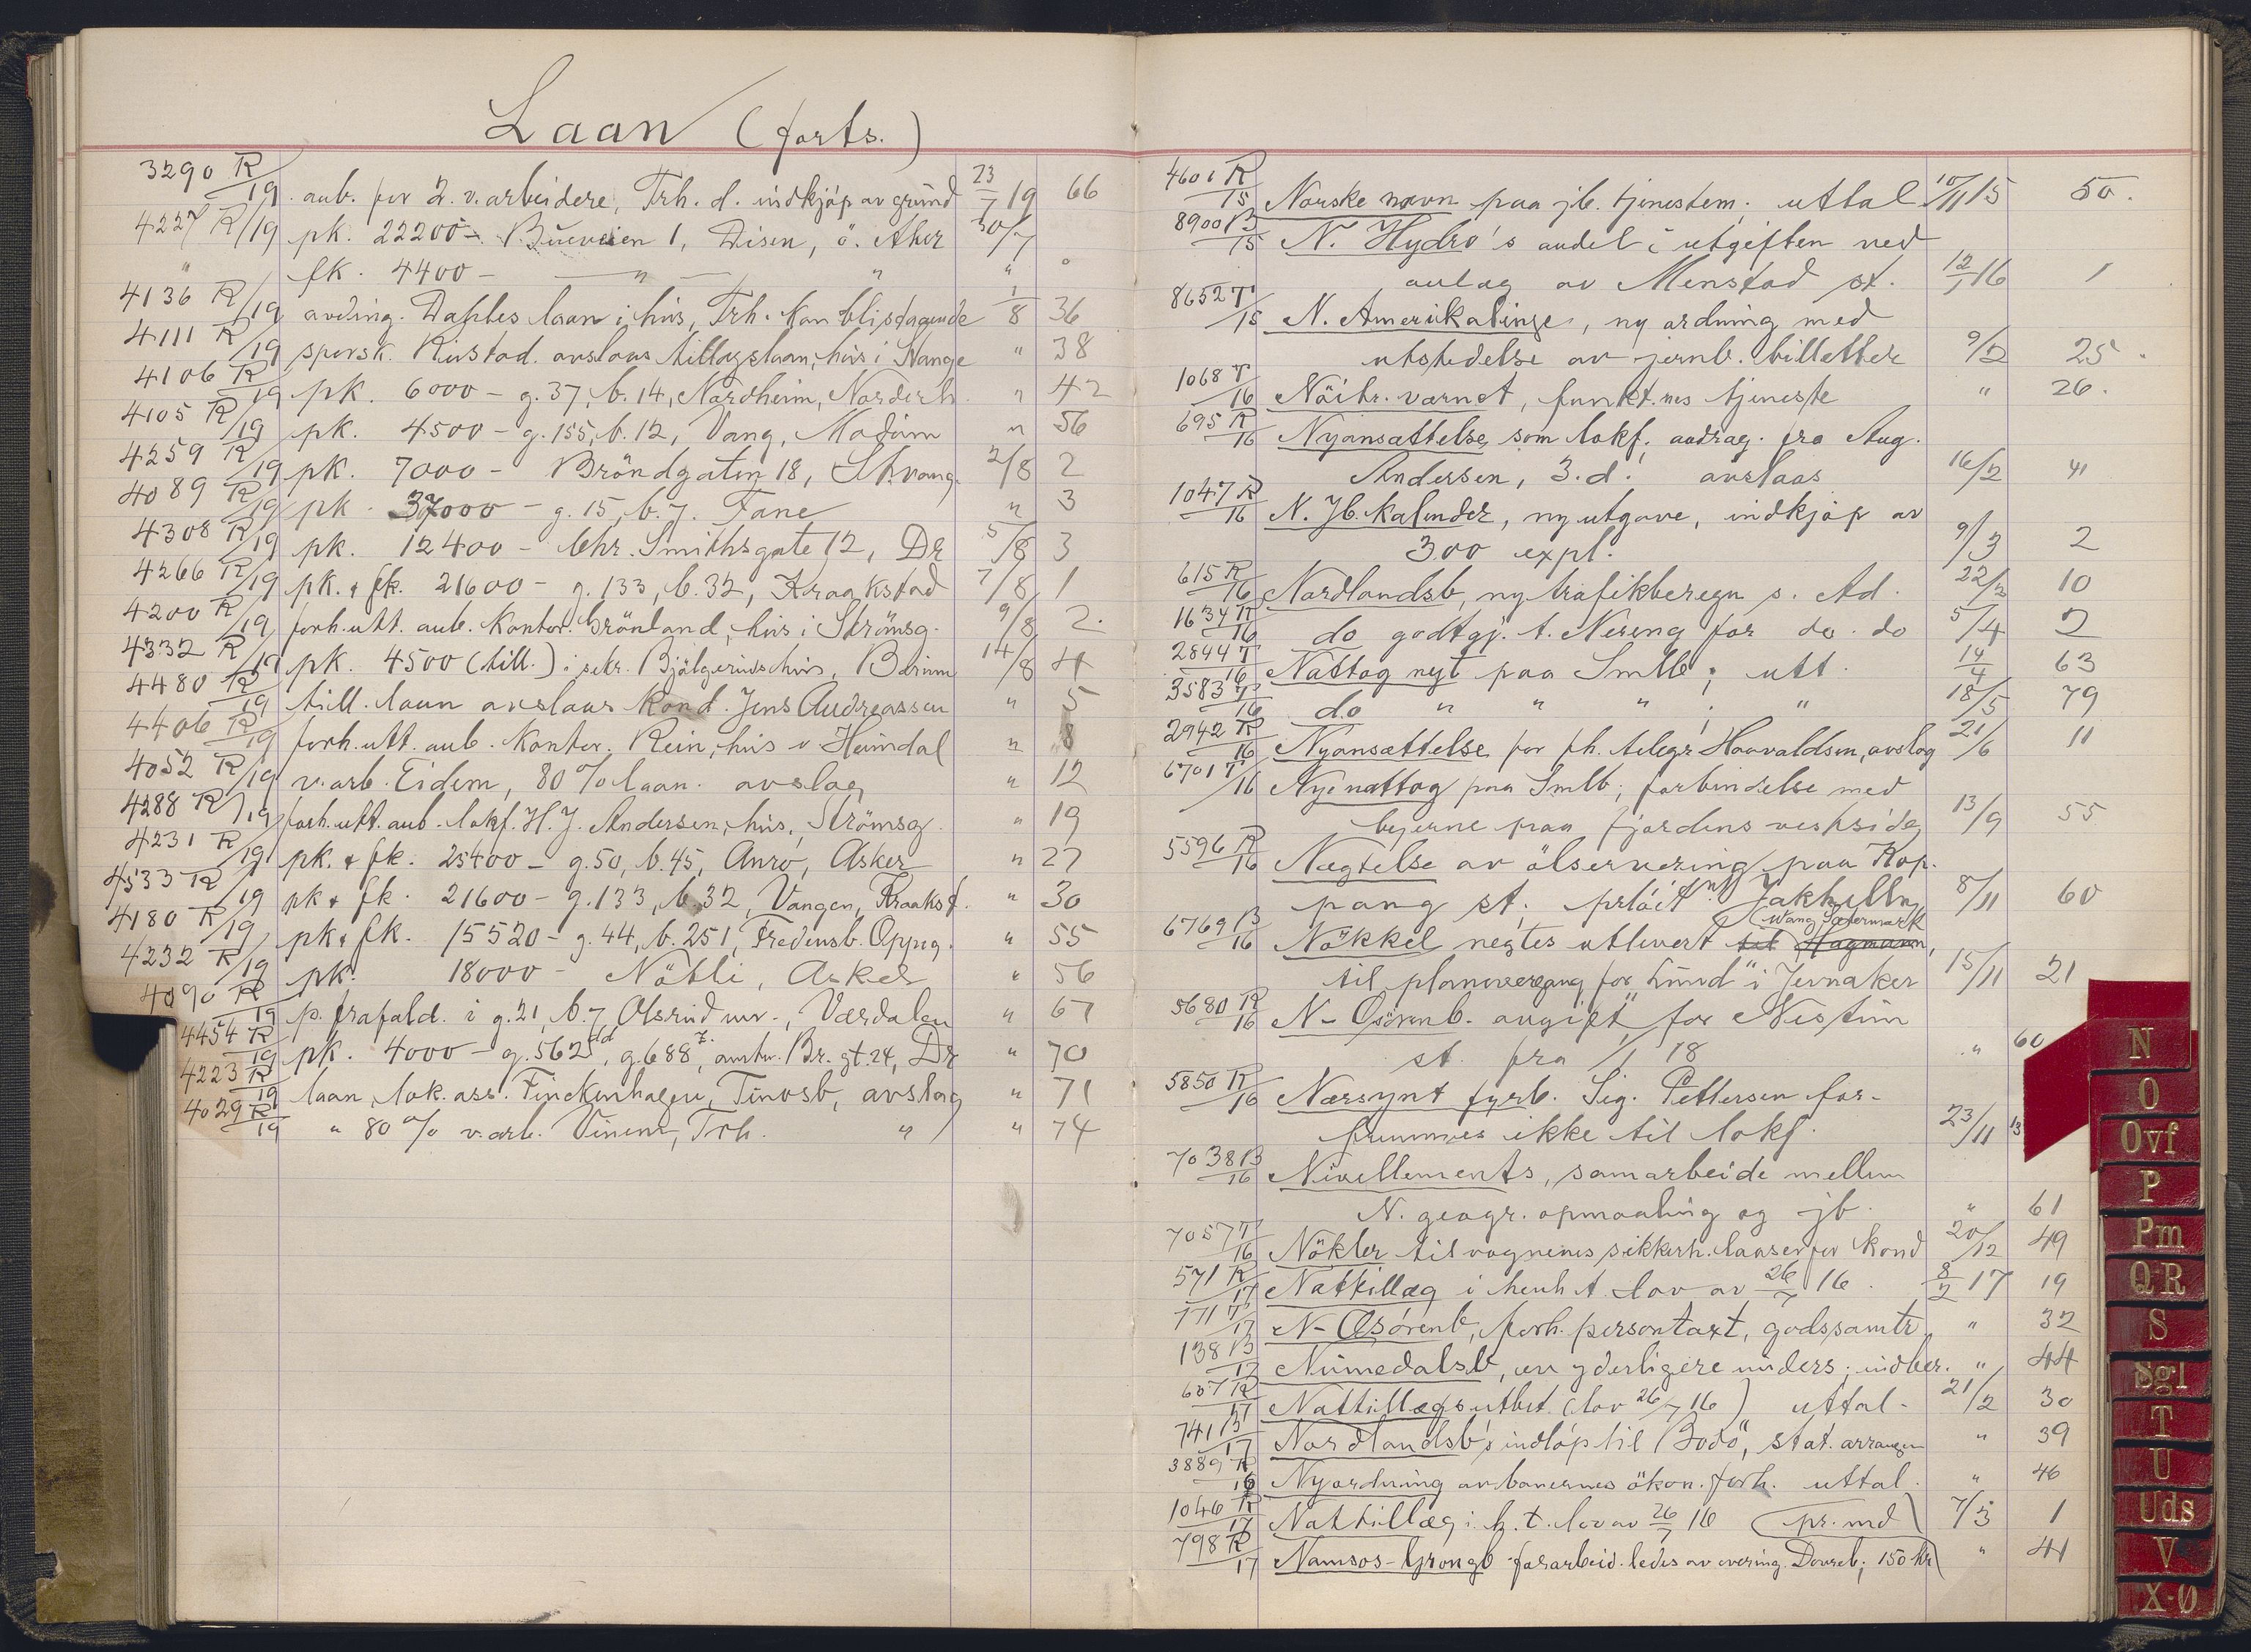 Laan (forts.)
3290 R/19 anb. for 2. v. arbeidere, Trh. d. indkjöp av grund 23/7 19 66
4227 R/19 pk. 22200 - Bueveien 1, Disen, ö. Aker 30/7
" fk. 4400 - " " " "
4136 R/19 avding. Dahles laan i hus, Trh. kan bli staaende 1/8 36
4111 R/19 sporsk. Rustad. avslaas tillægslaan, hus i Stange " 38
4106 R/19 pk. 6000 - g. 37, b. 14, Nordheim, Norderh. " 42
4105 R/19 pk. 4500 - g. 155, b. 12, Vang, Modum " 56
4259 R/19 pk. 7000 - Bröndgaten 18, St.vang. 2/8 2
4089 R/19 pk. 37000 - g. 15, b. 7. Fane " 3
4308 R/19 pk. 12400 - Chr. Smithsgate 12, Dr 5/8 3
4266 R/19 pk. & fk. 21600 - g. 133, b. 32, Kraakstad 7/8 1
4200 R/19 forh. utt. anb. Kontor. Grönland, hus i Strömsg. 9/8 2.
4332 R/19 pk. 4500 (till.) i sekr. Bjölgeruds hus, Bærum 14/8 4
4480 R/19 till. laan avslaas Kond. Jens Andreassen " 5
4406 R/19 forh. utt. anb. Kontor. Rein, hus v Heimdal " 8
4052 R/19 v. arb. Eidem, 80 % laan. avslag " 12
4288 R/19 forh. utt. anb. lokf. H. J. Andersen, hus, Strömsg. " 19
4231 R/19 pk. & fk. 25400 - g. 50, b. 45, Anro, Asker " 27
4533 R/19 pk & fk. 21600 - g. 133, b. 32, Vangen, Kraakst. " 30
4180 R/19 pk & fk. 15520 - g. 44, b. 251, Fredensb. Oppeg. " 55
4232 R/19 pk. 18000 - Nötli, Asker " 56
4090 R/19 p. frafald. i g. 21, b. 7, Olsrud mv., Værdalen " 67
4454 R/19 pk. 4000 - g. 562 d, g. 688 z, Br. gt. 24, Dr " 70
4223 R/19 laan, lok. ass. Finckenhagen, Tinosb, avslag " 71
4029 R/19 " 80 % v. arb. Vinene, Trh. " " 74
4601 R/15 Norske navn paa jb. tjenestem; uttal 10/11 15 50.
8900 B/15 N. Hydro's andel i utgiften ved
anlæg av Menstad st. 12/1 16 1
8652 T/15 N. Amerikalinje, ny ordning med
utstedelse av jernb. billetter 9/2 25
1068 T/16 Nöitr. værnet, funkt.nes tjeneste " 26.
695 R/16 Nyansættelse som lokf. andrag. fra Aug.
Andersen, 3. d. avslaas 16/2 41
1047 R/16 N. Jb. kalender, ny utgave, indkjöp av
300 expl. 9/3 2
615 R/16 Nordlandsb, ny trafikberegn s. Ad. 22/3 10
1634 R/16 do godtgj. t. Nereng for do. do 5/4 2
2844 T/16 Nattog nyt paa Smlb; utt. 14/4 63
3583 T/16 do " " " ; " 18/5 79
2942 R/16 Nyansættelse for fh. telegr Haavaldsen, avslag 21/6 11
6701 T/16 Nye nattog paa Smlb; forbindelse med
byerne paa fjordens vestside 13/9 55
5596 R/16 Nægtelse av ölservering paa Kop-
pang st; prlöit Jakhelln 8/11 60
Wang Sætermark
6769 B/16 Nökkel negtes utlevert til Hagmann,
til planovergang for "Lund" i Jevnaker 15/11 21
5680 R/16 N - Osörenb. avgift for Nestun
st. fra 1/1 18 " 60
5850 R/16 Nærsynt fyrb. Sig. Pettersen for-
fremmes ikke til lokf. 23/11 13
7038 B/16 Nivellements, samarbeide mellem
N. geogr. opmaaling og jb. " 61
7057 T/16 Nökler til vognenes sikkerh. laaser for Kond 20/12 49
571 R/17 Nattillæg i henh. t. lov av 26/7 16. 8/2 17 19
771 T/17 N - Osörenb, forh. persontaxt, godssamtr " 32
138 B/17 Numedalsb, en yderligere unders; indber. " 44
607 R/17 Nattillægs utbet. (lov 26/7 16) uttal - 21/2 30
741 B/17 Nordlandsb's indlöp til Bodö, stat. arrangem " 39
3889 R/16 Nyordning av banernes ökon. forh. uttal. " 46
1046 R/17 Nattillæg i h. t. lov av 26/7 16 (pr. md) 7/3 1
798 R/17 Namsos-Grongb forarbeid. ledes av overing. Dovreb; 150 kr " 41
N
O
Ovf
P
Pm
Q-R
S
Sgl
T
U
Uds
V
X-Ø